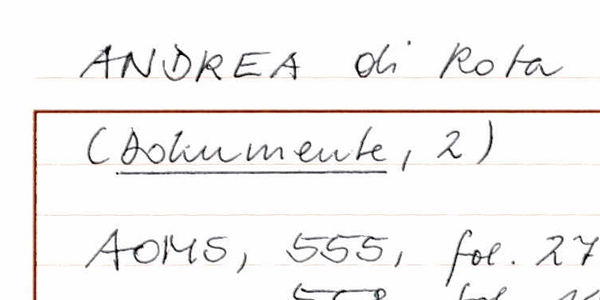 ANDREA di Rota
(Dokumente, 2)
AOMS, 555, fol. 27